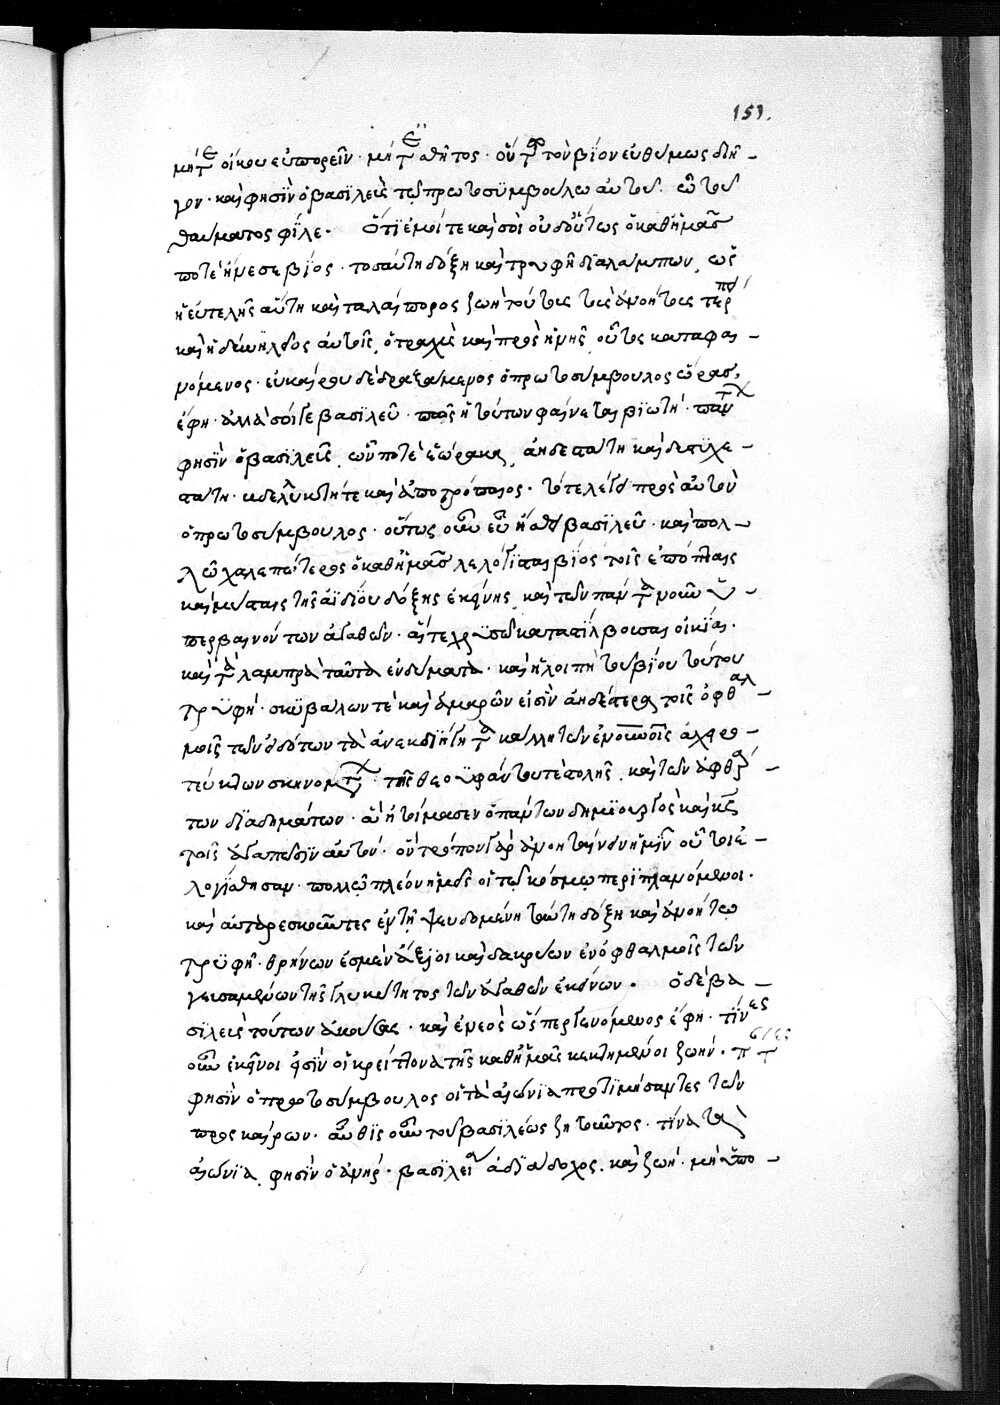 151.
μήτε οἴκου εὐπορεῖν · μήτε ἐσθῆτος · οὕτω τὸν βίον εὐθύμως διῆ –
γον · καὶ φησὶν ὁ βασιλεὺς τῷ πρωτοσυμβούλω αὐτοῦ · ὢ τοῦ
θαύματος φίλε · Ὅτι ἐμοί τε καὶ σοὶ οὐδ' οὕτως ὁ καθ' ἡμᾶς
ποτὲ ἤρεσε βίος · τοσαύτη δόξη καὶ τρυφῆ διαλάμπων, ὡς
ἡ εὐτελὴς αὕτη καὶ ταλαίπωρος ζωὴ τούτους τοὺς ἀνοήτους τέρπει
καὶ ἡδύνει αὐτοῖς, ὁ τραχὺς καὶ προσηνὴς, οὗτος καταφαι –
νόμενος · εὐκαίρου δὲ δραξάμενος ὁ πρωτοσύμβουλος ὥρας,
ἔφη · ἀλλὰ σοί γε βασιλεῦ · πῶς ἡ τούτων φαίνεται βιωτή · πάντων
φησὶν ὁ βασιλεὺς, ὧν ποτὲ ἑώρακα, ἀηδεστάτη καὶ δυστυχε –
στάτη · ἐβδελυκτή τε καὶ ἀπότροπαιος · τότε λέγει πρὸς αὐτὸν
ὁ πρωτοσύμβουλος · οὕτως οὖν εὖ ἴσθι βασιλεῦ · καὶ πολ –
λῷ χαλεπώτερος ὁ καθ' ἡμᾶς λελόγισται βίος τοῖς ἐπόπταις
καὶ μύσταις τῆς ἀϊδίου δόξης ἐκείνης, καὶ τῶν πάντα νοῦν ὑ –
περβαινόντων ἀγαθῶν · αἵ τε χρυσῶ καταστίλβουσαι οἰκίαι ·
καὶ τὰ λαμπρὰ ταῦτα ἐνδύματα · καὶ ἡ λοιπὴ τοῦ βίου τούτου
τρυφή · σκυβάλων τὲ καὶ ἀμαρῶν εἰσὶν ἀηδέστερα τοῖς ὀφθαλ –
μοῖς τῶν εἰδότων τὰ ἀνεκδιήγητα κάλλη τῶν ἐν οὐρανοῖς ἀχειρο –
τεύκτων σκηνομάτων · τῆς θεοϋφάντου τε στολῆς, καὶ τῶν ἀφθάρ –
των διαδημάτων · ἃ ἡτοίμασεν ὁ πάντων δημιουργὸς καὶ κύριος
τοῖς ἀγαπῶσιν αὐτόν · ὃν τρόπον γὰρ ἀνοηταίνειν ἡμῖν οὗτοι ἐ –
λογίσθησαν · πολλῷ πλέον ἡμεῖς οἱ τῷ κόσμῳ περιπλανόμενοι ·
καὶ αὐταρεσκοῦντες ἐν τῇ ψευδομένη ταύτη δόξη καὶ ἀνοήτω
τρυφῆ · θρήνων ἐσμὲν ἄξιοι καὶ δακρύων ἐν ὀφθαλμοῖς τῶν
γευσαμένων τῆς γλυκύτητος τῶν ἀγαθῶν ἐκείνων · Ὁ δὲ βα –
σιλεὺς τούτων ἀκούσας · καὶ ἐννεὸς ὥσπερ γενόμενος ἔφη · τίνες
οὖν ἐκεῖνοι εἰσὶν οἱ κρείττονα τῆς καθ' ἡμᾶς κεκτημένοι ζωήν · πάντες
φησὶν ὁ πρωτοσύμβουλος οἱ τὰ αἰώνια προτιμήσαντες τῶν
προσκαίρων · αὖθις οὖν τοῦ βασιλέως ζητοῦντος · τίνα τὰ
αἰώνια, φησὶν ὁ ἀνὴρ · βασιλεία ἀδιάδοχος, καὶ ζωὴ · μὴ ὑπο –